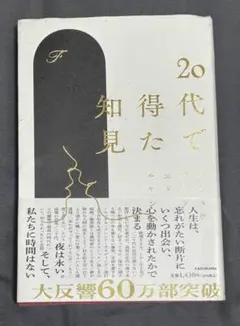 F
20代で
得た
知見
人生は、
忘れがたい断片に
いくつ出会い、
心を動かされたかで
決まる。
夜は永い。
そして、
私たちに時間はない。
KADOKAWA
大反響60万部突破